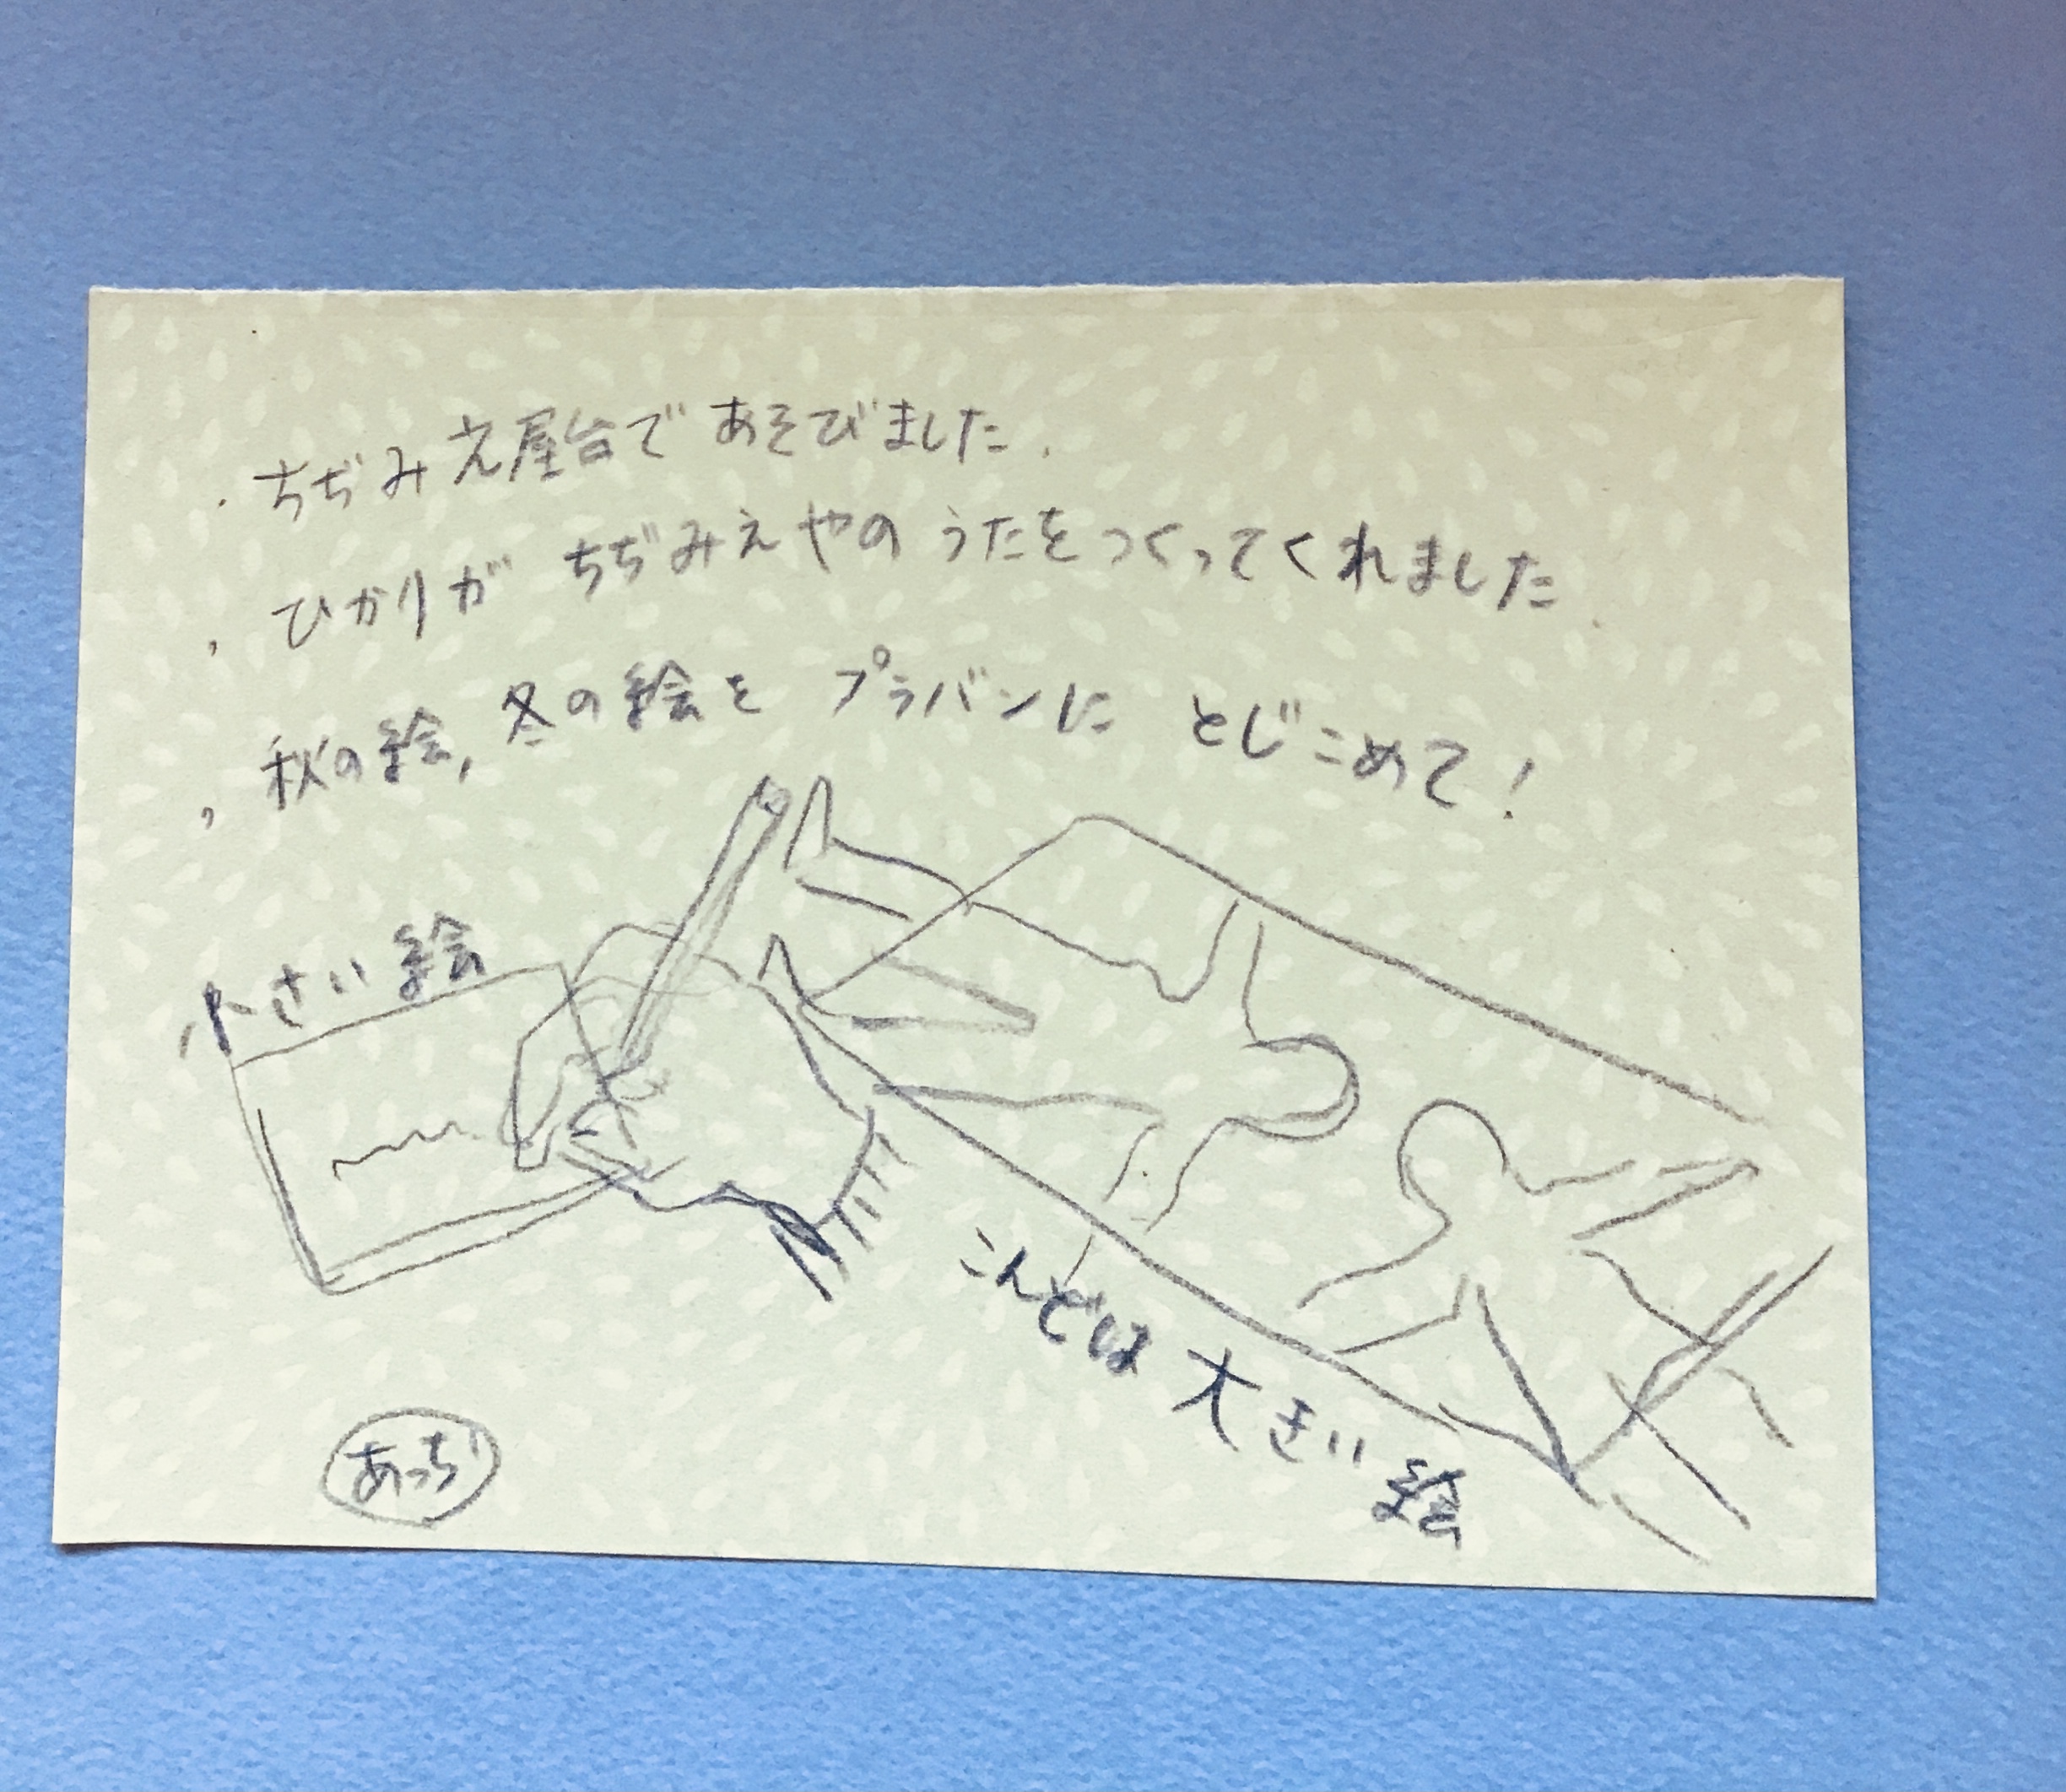 ・ちぢみえ屋台であそびました.
・ひかりが ちぢみえやの うたをつくってくれました.
・秋の絵, 冬の絵を プラバンに とじこめて!
小さい絵
こんどは 大きい絵
あっちゃ